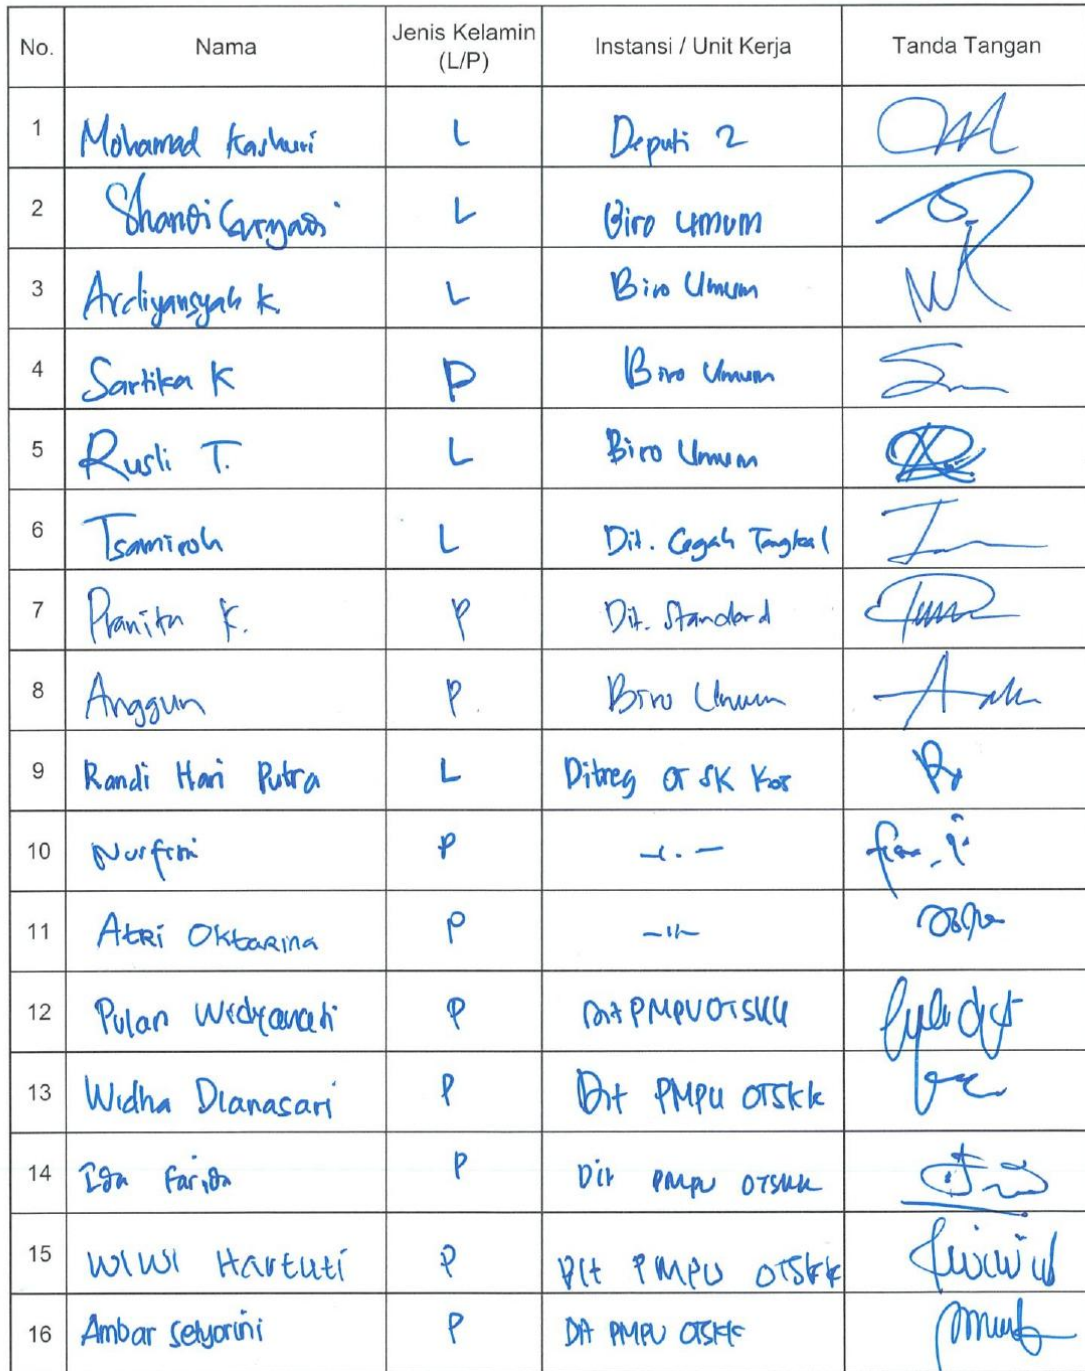 No. Nama Jenis Kelamin (L/P) Instansi / Unit Kerja Tanda Tangan
1 Mohamad Kashuri L Deputi 2
2 Shandi L Biro Umum
3 Ardiyansyah K. L Biro Umum
4 Sartika K P Biro Umum
5 Rusli T. L Biro Umum
6 Tsamiroh L Dit. Cegah Tangkal
7 Pranita K. P Dit. Standard
8 Anggun P. Biro Umum
9 Randi Hari Putra L Ditreg OT SK Kos
10 P
11 Atri Oktarina P -11-
12 Pulan P Dit PMPU OTSKK
13 Widha Dianasari P Dit PMPU OTSKK
14 Ida Farida P Dit PMPU OTSKK
15 WIWI Hartuti P Dit PMPU OTSKK
16 Ambar Setyorini P Dit PMPU OTSKK